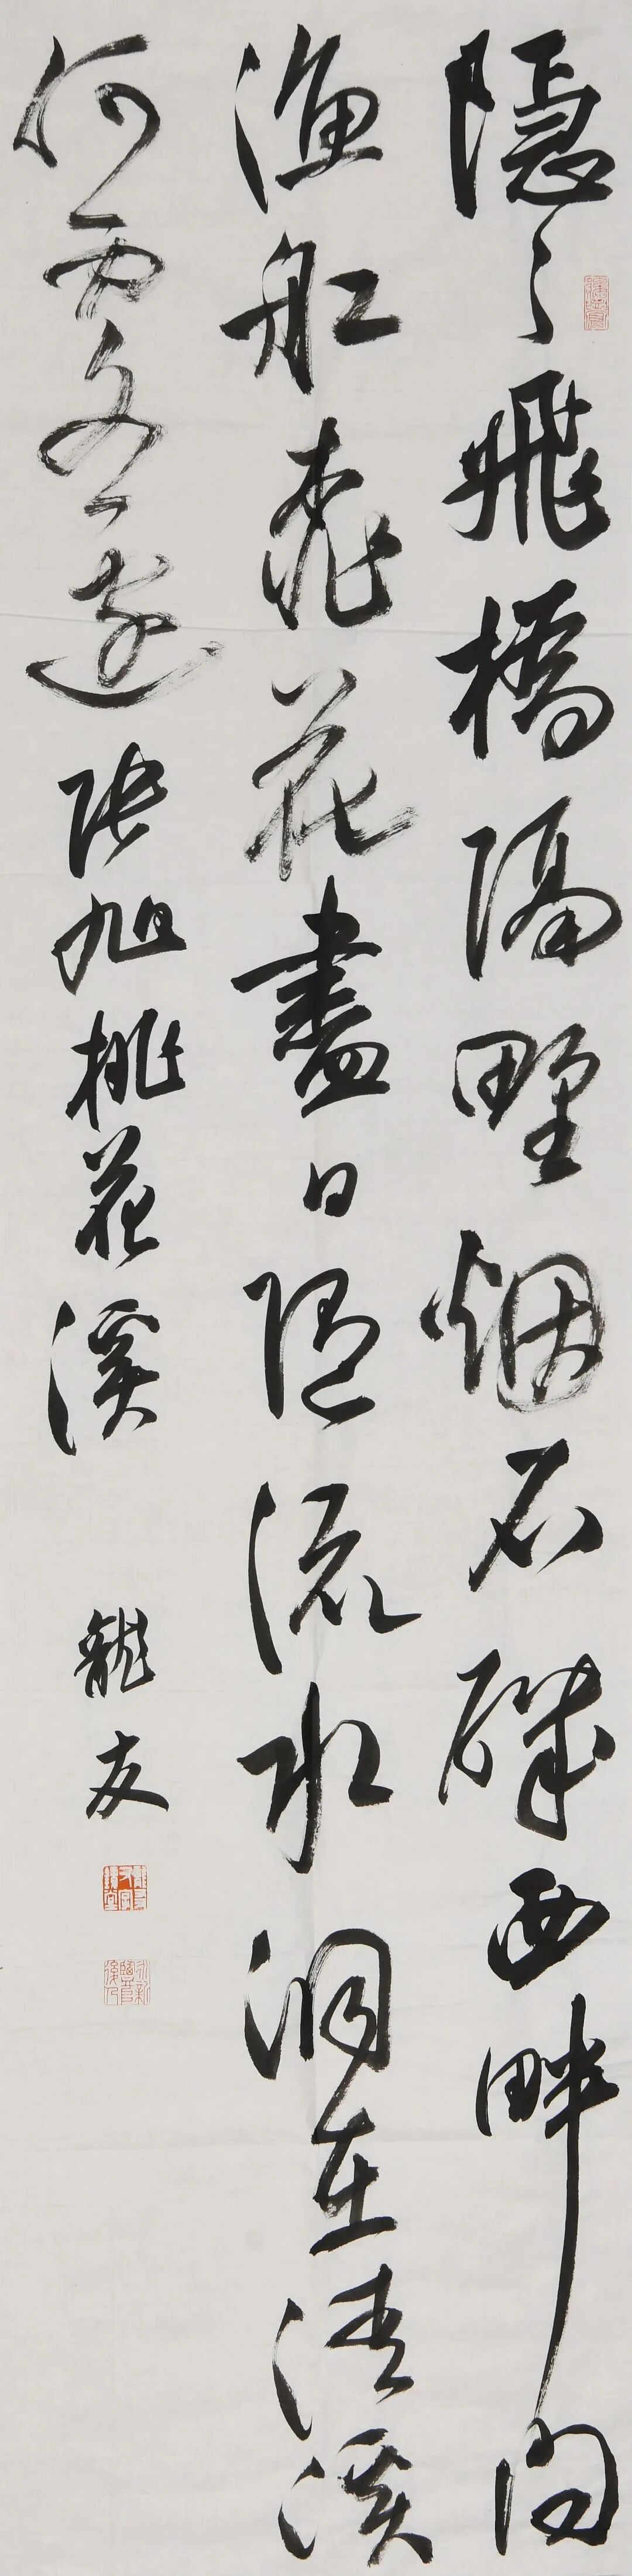 隱々飛橋隔野烟石磯西畔問
漁船桃花盡日隨流水洞在清溪
何處邊 張旭桃花溪 龍友